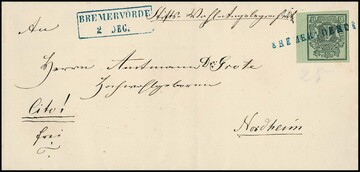 BREMERVÖRDE
2 DEC.
Stifts-Wahlangelegenheit
BREMERVÖRDE
An
Herrn Amtmann Dr Grote
Hochwohlgeboren
Cito!
frei
Nordheim